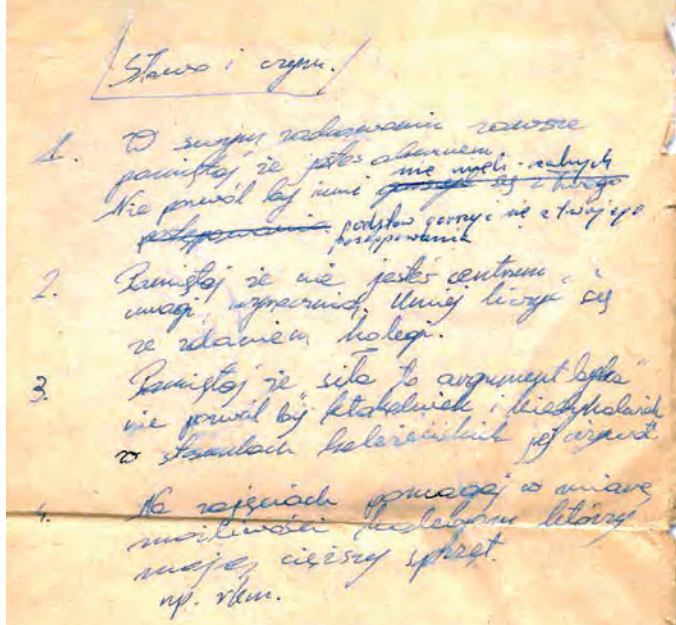 Słowo i czyn.
1. W swojym zachowaniu zawsze
pamiętaj że jesteś
Nie pozwól by inni nie mieli żadnych
podstaw gorszyć się z twojego
postępowania
2. Pamiętaj że nie jesteś centrum
uwagi, wszechwiedzą. Umiej liczyć się
ze zdaniem kolegi.
3. Pamiętaj że siła to argument byka"
nie pozwól by ktokolwiek i kiedykolwiek
w stosunkach koleżeńskich jej używał
4. Na zajęciach pomagaj w miarę
możliwości kolegom którzy
mają cięższy sprzęt.
np. rkm.